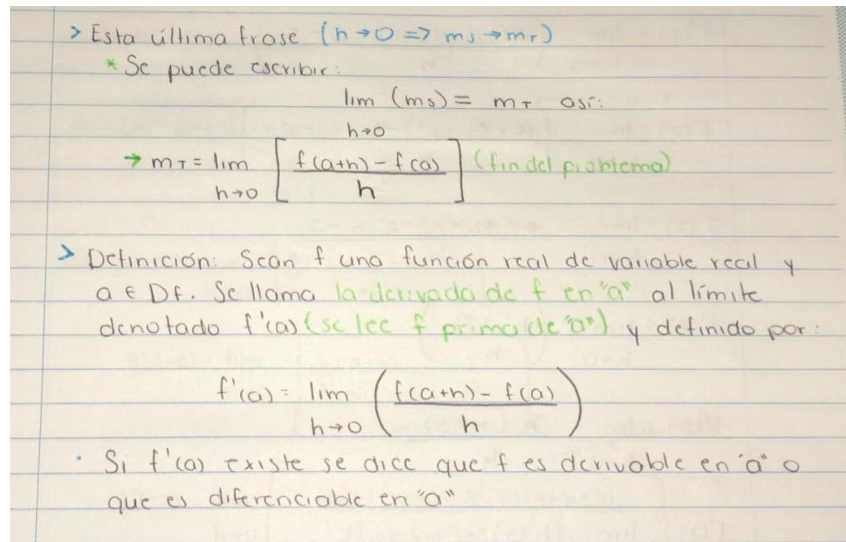 > Esta última frase (h→0 => ms→mr)
* Se puede escribir:
lim (ms) = mT así:
h→0
→ mT = lim [ f(a+h) - f(a) / h ] (fin del problema)
h→0
> Definición: Sean f una función real de variable real y
a ∈ Df. Se llama la derivada de f en "a" al límite
denotado f'(a) (se lee f prima de "a") y definido por:
f'(a) = lim ( f(a+h) - f(a) / h )
h→0
· Si f'(a) existe se dice que f es derivable en "a" o
que es diferenciable en "a"